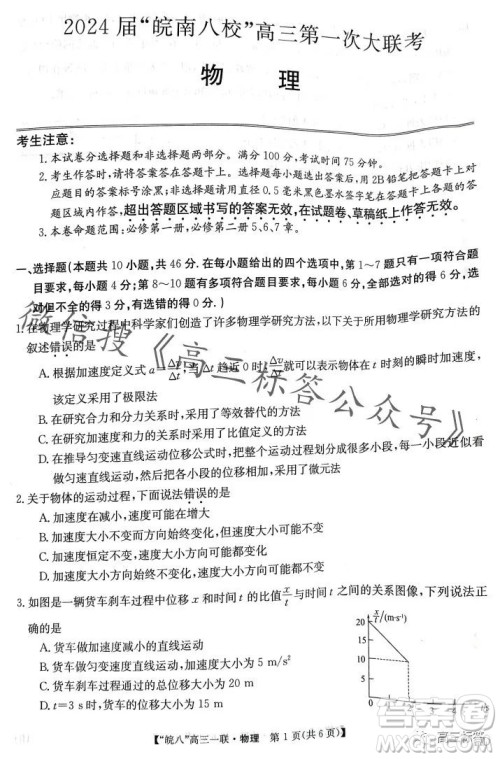 2024 届“皖南八校”高三第一次大联考
物　理
考生注意:
1. 本试卷分选择题和非选择题两部分。满分 100 分,考试时间 75 分钟。
2. 考生作答时,请将答案答在答题卡上。选择题每小题选出答案后,用 2B 铅笔把答题卡上对
应题目的答案标号涂黑;非选择题请用直径 0.5 毫米黑色墨水签字笔在答题卡上各题的答题
区域内作答,超出答题区域书写的答案无效,在试题卷、草稿纸上作答无效。
3. 本卷命题范围:必修第一册,必修第二册 5、6、7 章。
一、选择题(本题共 10 小题,共 46 分。在每小题给出的四个选项中,第 1~7 题只有一项符合题
目要求,每小题 4 分;第 8~10 题有多项符合题目要求,每小题 6 分,全部选对的得 6 分,选
对但不全的得 3 分,有选错的得 0 分)
1. 在物理学研究过程中科学家们创造了许多物理学研究方法,以下关于所用物理学研究方法的
叙述错误的是
A. 根据加速度定义式 a=Δv/Δt,当 Δt 趋近 0 时 Δv/Δt 就可以表示物体在 t 时刻的瞬时加速度,
该定义采用了极限法
B. 在研究合力和分力关系时,采用了等效替代的方法
C. 在研究加速度和力的关系时采用了比值定义的方法
D. 在推导匀变速直线运动位移公式时,把整个运动过程划分很多小段,每一小段近似看
做匀速直线运动,然后把各小段的位移相加,采用了微元法
2. 关于物体的运动过程,下面说法错误的是
A. 加速度在减小,速度可能在增大
B. 加速度方向始终变化,但加速度可能不变
C. 加速度恒定不变,速度大小、方向可能都变化
D. 加速度大小始终不变,速度大小、方向可能都不变
3. 如图是一辆货车刹车过程中位移 x 和时间 t 的比值 x/t 与时间 t 之间的关系图像,下列说法正
确的是
A. 货车做加速度减小的直线运动
B. 货车做匀变速直线运动,加速度大小为 5 m/s²
C. 货车刹车过程的最大位移大小为 20 m
D. t=3 s 时,货车的位移大小为 15 m
x/t/(m·s⁻¹)
20
15
10
5
0
【“皖八”高三一联·物理　第 1 页(共 6 页)】
微信搜《高三标答公众号》
答案圈